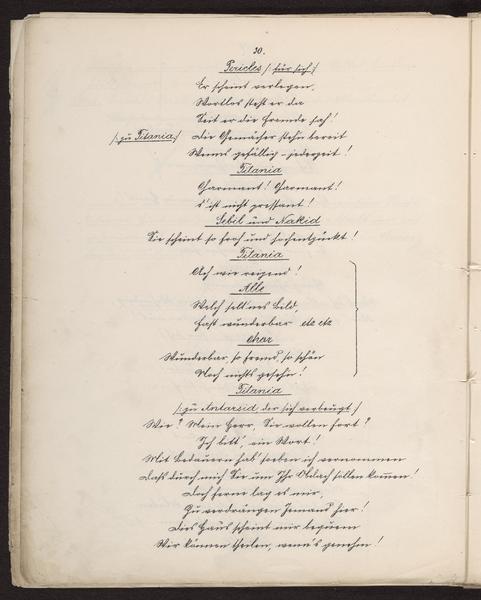 30.
Pericles /: für sich :/
Er scheint verlegen,
Wortlos steht er da
Seit er die Fremde sah!
/: zu Titania :/ Die Gemächer stehn bereit
Wenns gefällig – jederzeit!
Titania
Charmant! Charmant!
s' ist nicht pressant!
Sebil und Nakid
Sie scheint so froh und hochentzückt!
Titania
Ach wie reizend!
Alle
Welch selt'nes Bild,
Fast wunderbar etc etc
Chor
Wunderbar, so fremd, so schön
Noch nichts gesehn!
Titania
/: zu Antarsid der sich verbeugt :/
Wie? Mein Herr, Sie wollen fort?
Ich bitt', ein Wort!
Mit Bedauern hab' soeben ich vernommen
Dass durch mich Sie um Ihr Obdach sollen kommen!
Doch ferne lag es mir,
Zu verdrängen Jemand hier!
Dies Haus scheint mir bequem
Wir können theilen, wenn's genehm!